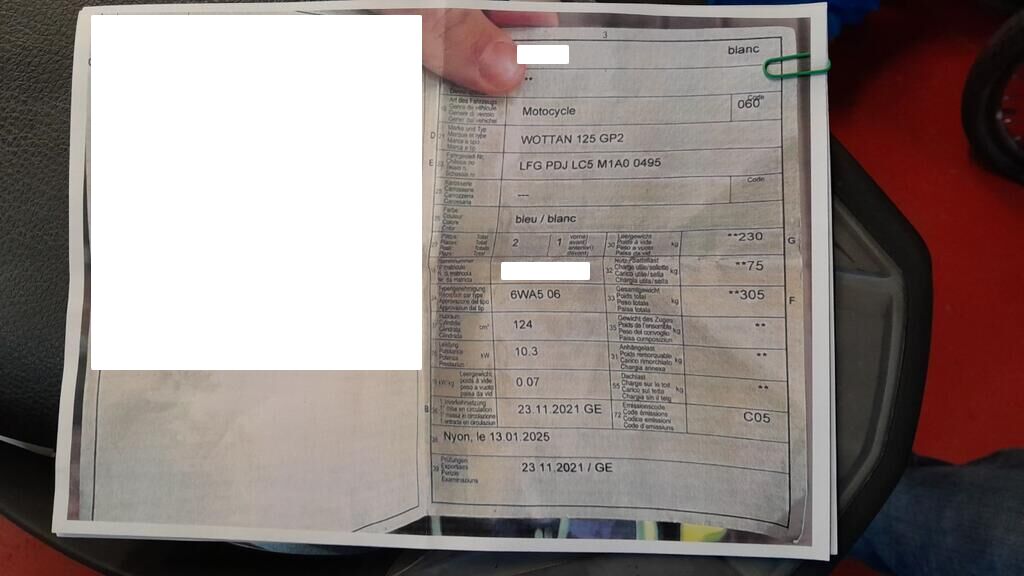 3
blanc
**
Art des Fahrzeugs
Genre de véhicule
Genere di veicolo
Gener dal vehichel
Motocycle
Code
060
D
Marke und Typ
Marque et type
Marca e tipo
Marca e tip
WOTTAN 125 GP2
E
Fahrgestell-Nr.
Châssis no
Telaio n.
Schassis nr.
LFG PDJ LC5 M1A0 0495
Karosserie
Carrosserie
Carrozzeria
Carossaria
---
Code
Farbe
Couleur
Colore
Color
bleu / blanc
Plätze: Total
Places: Total
Posti: Totale
Plazs: Total
2
1
vorne)
avant)
anteriori)
davant)
30
Leergewicht
Poids à vide
Peso a vuoto
Paisa da vid
kg
**230
G
32
Nutz-/Sattellast
Charge utile/sellette
Carico utile/sella
Chargia utila/sella
kg
**75
Typengenehmigung
Réception par type
Approvazione del tipo
Approvaziun dal tip
6WA5 06
33
Gesamtgewicht
Poids total
Peso totale
Paisa totala
kg
**305
F
Hubraum
Cylindrée
Cilindrata
Cilindrada
cm³
124
35
Gewicht des Zuges
Poids de l'ensemble
Peso del convoglio
Paisa cumposiziun
kg
**
Leistung
Puissance
Potenza
Prestaziun
kW
10.3
31
Anhängelast
Poids remorquable
Carico rimorchiato
Chargia annexa
kg
**
kW/kg
Leergewicht
poids à vide
peso a vuoto
paisa da vid
0 07
55
Dachlast
Charge sur le toit
Carico sul tetto
Chargia sin il tetg
kg
**
B
1. Inverkehrsetzung
1. mise en circulation
1. messa in circolazione
1. entrada en circulaziun
23.11.2021 GE
72
Emissionscode
Code émissions
Codice emissioni
Code d'emissiuns
C05
38
Nyon, le 13.01.2025
39
Prüfungen
Expertises
Perizie
Examinaziuns
23 11.2021 / GE